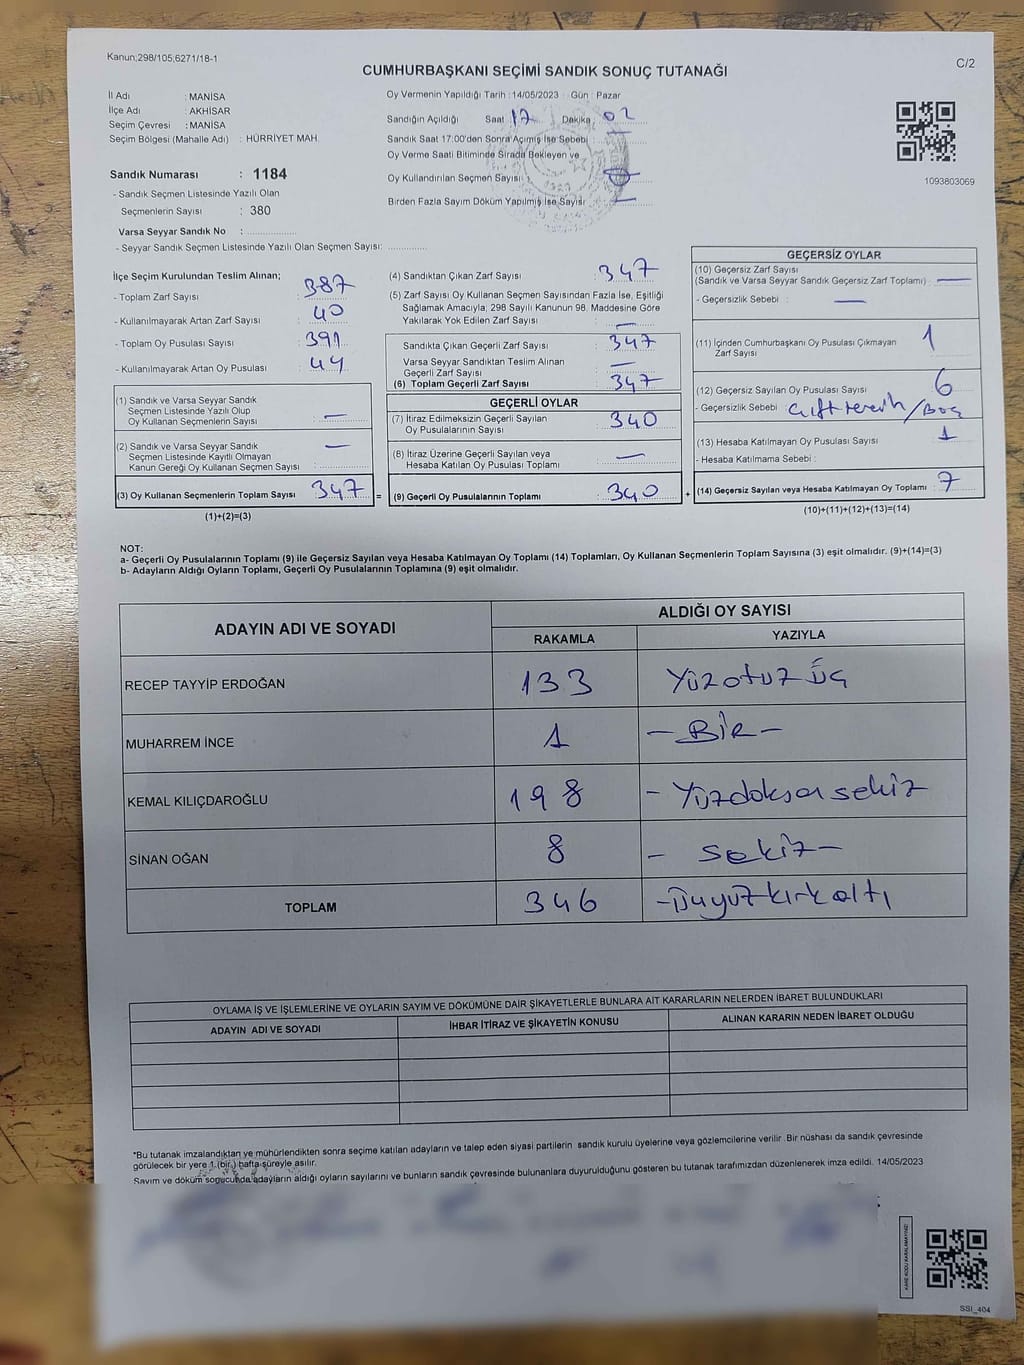 Kanun;298/105;6271/18-1
C/2
CUMHURBAŞKANI SEÇİMİ SANDIK SONUÇ TUTANAĞI
İl Adı : MANİSA
İlçe Adı : AKHİSAR
Seçim Çevresi : MANİSA
Seçim Bölgesi (Mahalle Adı) : HÜRRİYET MAH.
Sandık Numarası : 1184
- Sandık Seçmen Listesinde Yazılı Olan
Seçmenlerin Sayısı : 380
Varsa Seyyar Sandık No :
- Seyyar Sandık Seçmen Listesinde Yazılı Olan Seçmen Sayısı:
Oy Vermenin Yapıldığı Tarih :14/05/2023 Gün : Pazar
Sandığın Açıldığı Saat 17 Dakika 02
Sandık Saat 17:00'den Sonra Açımış İse Sebebi :
Oy Verme Saati Bitiminde Sırada Bekleyen ve
Oy Kullandırılan Seçmen Sayısı :
Birden Fazla Sayım Döküm Yapılmış İse Sayısı
1093803069
İlçe Seçim Kurulundan Teslim Alınan;
- Toplam Zarf Sayısı : 387
- Kullanılmayarak Artan Zarf Sayısı : 40
- Toplam Oy Pusulası Sayısı : 391
- Kullanılmayarak Artan Oy Pusulası : 44
(1) Sandık ve Varsa Seyyar Sandık
Seçmen Listesinde Yazılı Olup
Oy Kullanan Seçmenlerin Sayısı : —
(2) Sandık ve Varsa Seyyar Sandık —
Seçmen Listesinde Kayıtlı Olmayan
Kanun Gereği Oy Kullanan Seçmen Sayısı :
(3) Oy Kullanan Seçmenlerin Toplam Sayısı : 347 =
(1)+(2)=(3)
(4) Sandıktan Çıkan Zarf Sayısı : 347
(5) Zarf Sayısı Oy Kullanan Seçmen Sayısından Fazla İse, Eşitliği
Sağlamak Amacıyla; 298 Sayılı Kanunun 98. Maddesine Göre
Yakılarak Yok Edilen Zarf Sayısı : —
Sandıkta Çıkan Geçerli Zarf Sayısı : 347
Varsa Seyyar Sandıktan Teslim Alınan
Geçerli Zarf Sayısı : —
(6) Toplam Geçerli Zarf Sayısı : 347
GEÇERLİ OYLAR
(7) İtiraz Edilmeksizin Geçerli Sayılan
Oy Pusulalarının Sayısı : 340
(8) İtiraz Üzerine Geçerli Sayılan veya
Hesaba Katılan Oy Pusulası Toplamı : —
(9) Geçerli Oy Pusulalarının Toplamı : 340 +
GEÇERSİZ OYLAR
(10) Geçersiz Zarf Sayısı
(Sandık ve Varsa Seyyar Sandık Geçersiz Zarf Toplamı) : —
- Geçersizlik Sebebi : —
(11) İçinden Cumhurbaşkanı Oy Pusulası Çıkmayan
Zarf Sayısı : 1
(12) Geçersiz Sayılan Oy Pusulası Sayısı : 6
- Geçersizlik Sebebi Çift tercih / Boş
(13) Hesaba Katılmayan Oy Pusulası Sayısı : 1
- Hesaba Katılmama Sebebi :
(14) Geçersiz Sayılan veya Hesaba Katılmayan Oy Toplamı : 7
(10)+(11)+(12)+(13)=(14)
NOT:
a- Geçerli Oy Pusulalarının Toplamı (9) ile Geçersiz Sayılan veya Hesaba Katılmayan Oy Toplamı (14) Toplamları, Oy Kullanan Seçmenlerin Toplam Sayısına (3) eşit olmalıdır. (9)+(14)=(3)
b- Adayların Aldığı Oyların Toplamı, Geçerli Oy Pusulalarının Toplamına (9) eşit olmalıdır.
ADAYIN ADI VE SOYADI ALDIĞI OY SAYISI
RAKAMLA YAZIYLA
RECEP TAYYİP ERDOĞAN 133 Yüzotuz üç
MUHARREM İNCE 1 - Bir -
KEMAL KILIÇDAROĞLU 198 - Yüzdoksan sekiz
SİNAN OĞAN 8 - sekiz -
TOPLAM 346 - Üçyüz kırk altı
OYLAMA İŞ VE İŞLEMLERİNE VE OYLARIN SAYIM VE DÖKÜMÜNE DAİR ŞİKAYETLERLE BUNLARA AİT KARARLARIN NELERDEN İBARET BULUNDUKLARI
ADAYIN ADI VE SOYADI İHBAR İTİRAZ VE ŞİKAYETİN KONUSU ALINAN KARARIN NEDEN İBARET OLDUĞU
*Bu tutanak imzalandıktan ve mühürlendikten sonra seçime katılan adayların ve talep eden siyasi partilerin sandık kurulu üyelerine veya gözlemcilerine verilir .Bir nüshası da sandık çevresinde
görülecek bir yere 1 (bir) hafta süreyle asılır.
Sayım ve döküm sonucunda adayların aldığı oyların sayılarını ve bunların sandık çevresinde bulunanlara duyurulduğunu gösteren bu tutanak tarafımızdan düzenlenerek imza edildi. 14/05/2023
KARE KODU KARALAMAYINIZ!
SSI_404